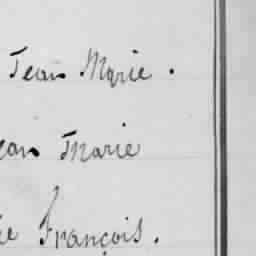 Jean Marie.
ean Marie
ie François.